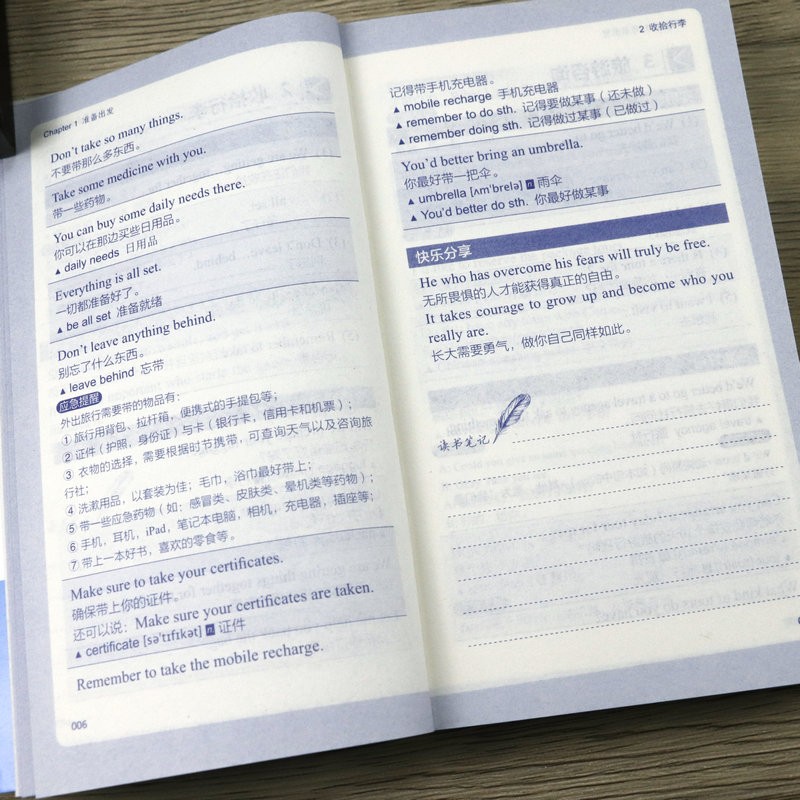 Chapter 1 准备出发
Don't take so many things.
不要带那么多东西。
Take some medicine with you.
带一些药物。
You can buy some daily needs there.
你可以在那边买些日用品。
▲ daily needs 日用品
Everything is all set.
一切都准备好了。
▲ be all set 准备就绪
Don't leave anything behind.
别忘了什么东西。
▲ leave behind 忘带
应急提醒
外出旅行需要带的物品有：
① 旅行用背包、拉杆箱，便携式的手提包等；
② 证件（护照，身份证）与卡（银行卡，信用卡和机票）；
③ 衣物的选择，需要根据时节携带，可查询天气以及咨询旅
行社；
④ 洗漱用品，以套装为佳；毛巾，浴巾最好带上；
⑤ 带一些应急药物（如：感冒类、皮肤类、晕机类等药物）；
⑥ 手机，耳机，iPad，笔记本电脑，相机，充电器，插座等；
⑦ 带上一本好书，喜欢的零食等。
Make sure to take your certificates.
确保带上你的证件。
还可以说：Make sure your certificates are taken.
▲ certificate [sə'tɪfɪkət] n. 证件
Remember to take the mobile recharge.
006
2 收拾行李
记得带手机充电器。
▲ mobile recharge 手机充电器
▲ remember to do sth. 记得要做某事（还未做）
▲ remember doing sth. 记得做过某事（已做过）
You'd better bring an umbrella.
你最好带一把伞。
▲ umbrella [ʌm'brelə] n. 雨伞
▲ You'd better do sth. 你最好做某事
快乐分享
He who has overcome his fears will truly be free.
无所畏惧的人才能获得真正的自由。
It takes courage to grow up and become who you
really are.
长大需要勇气，做你自己同样如此。
读书笔记